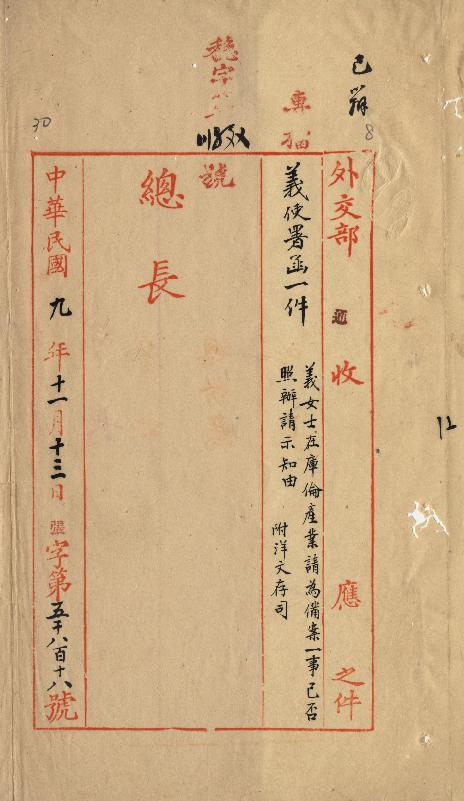 已辦
8
12
外交部 收 應 之件
義使署函一件
義女士在庫倫產業請為備案一事已否
照辦請示知由 附洋文存司
總長
號
中華民國九年十一月十三日 張字第五千八百十八號
30